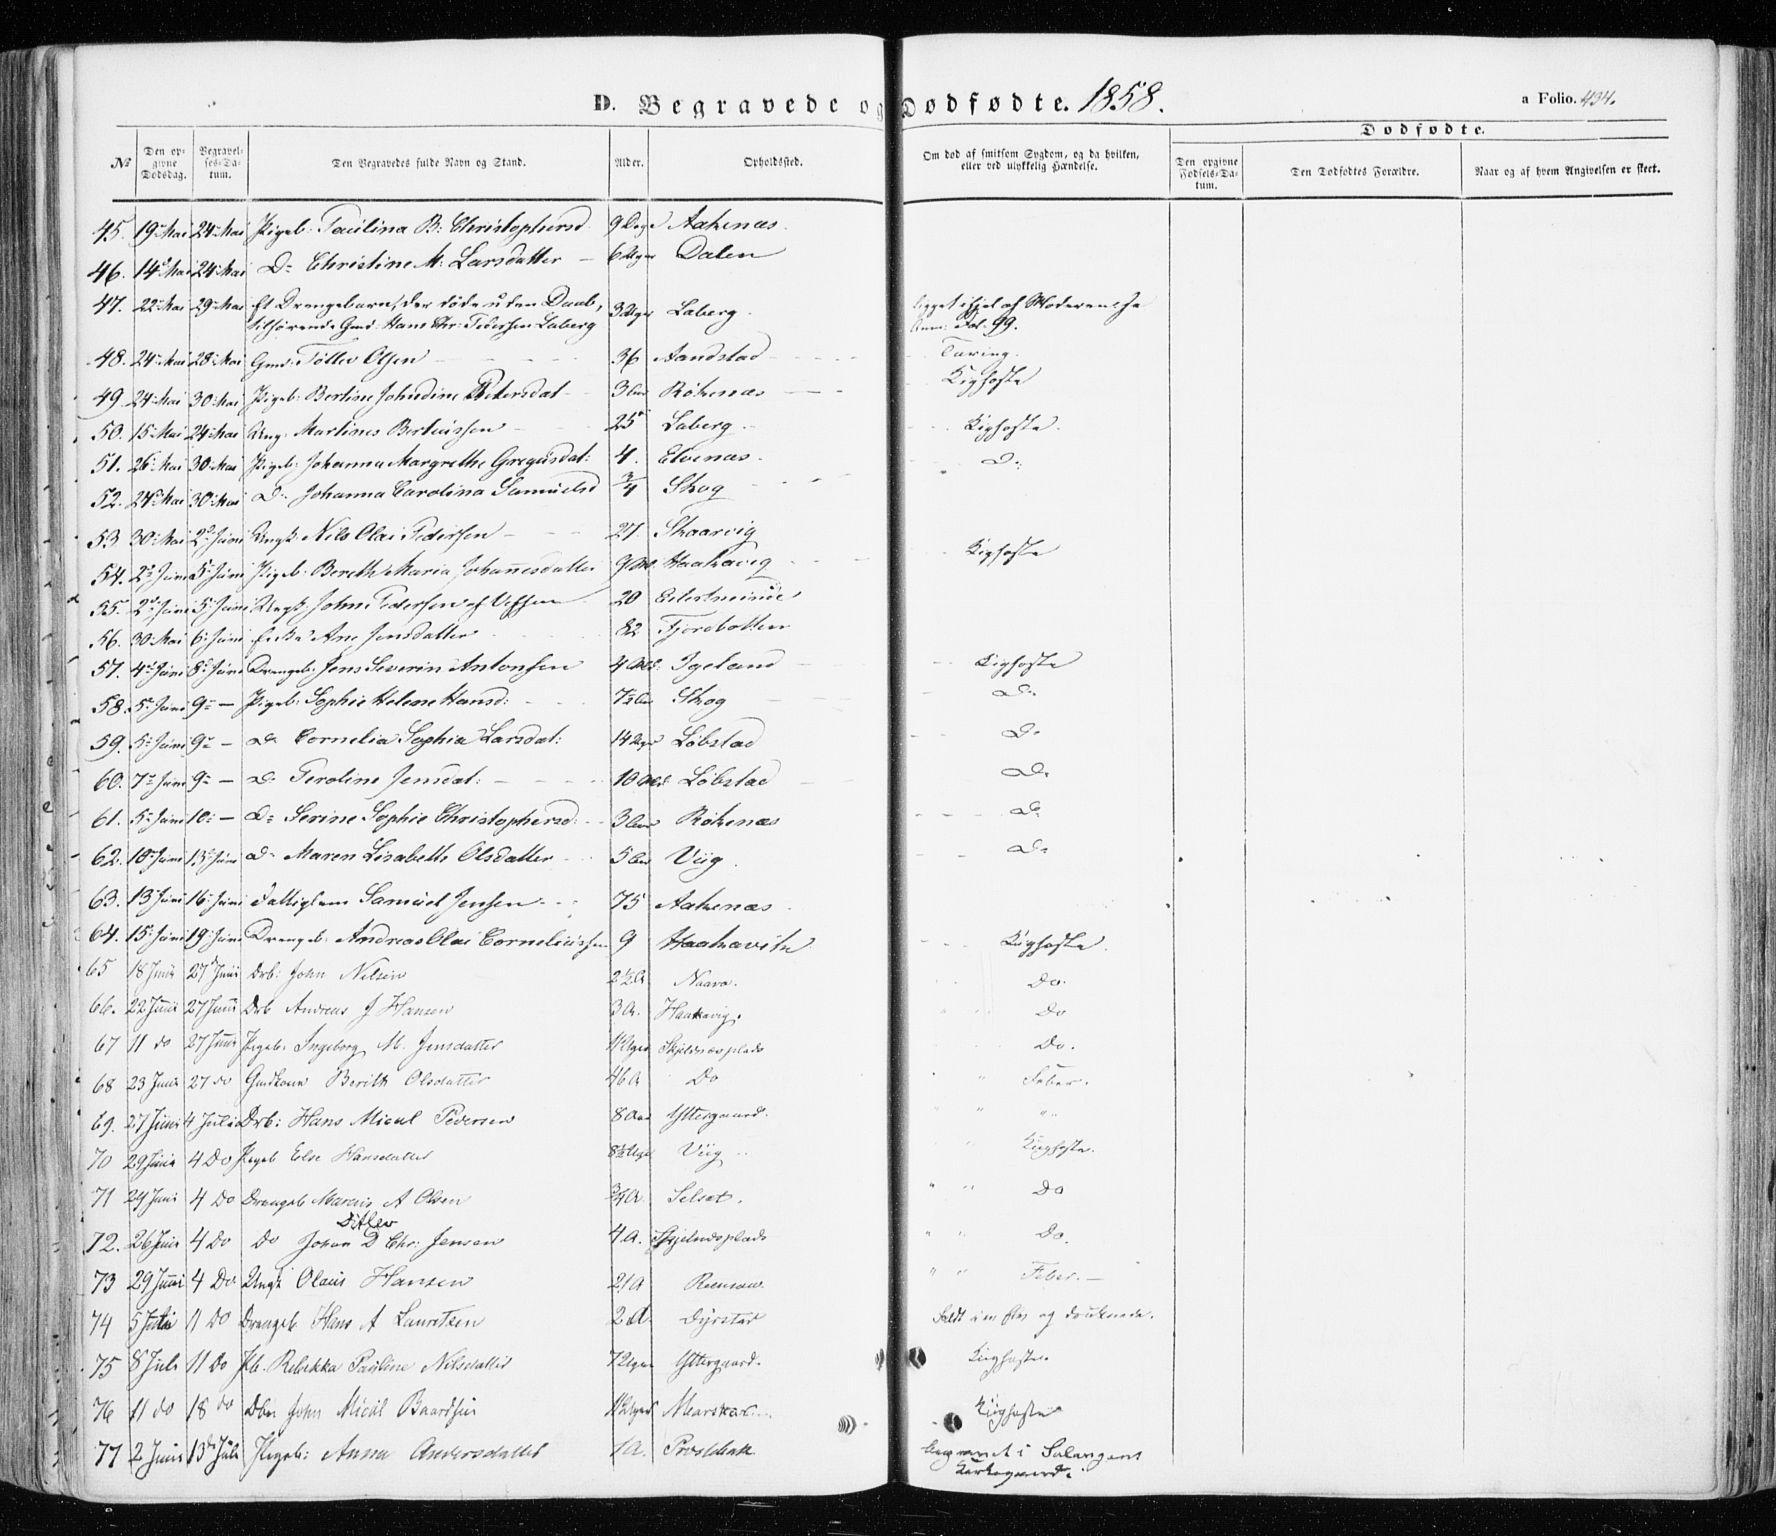 D. Begravede og Dødfødte. 1858.
a Folio. 434.
Dødfødte.
№ Den opgivne Dødsdag. Begravelses-Datum. Den Begravedes fulde Navn og Stand. Alder. Opholdssted. Om død af smitsom Sygdom, og da hvilken, eller ved ulykkelig Hændelse. Den opgivne Fødsels-Datum. Den Dødfødtes Forældre. Naar og af hvem Angivelsen er skeet.
45. 19 Mai 24 Mai Pigeb: Paulina B: Christophersd 9 Dage Aakenæs.
46. 14 Mai 24 Mai D: Christine M: Larsdatter 6 Uger Dalen
47. 22 Mai 29 Mai Et Drengebarn, der døde uden Daab, 3 Uger Laberg. ligget ihjel af Moderen
tilhørende Gmd: Hans Chr: Pedersen Laberg Fol. 99.
48. 24 Mai 28 Mai Gmd: Tollev Olsen 36 Aandstad Tæring.
49. 24 Mai 30 Mai Pigeb: Bertine Johndine Petersdat 3 Rökenæs Kighoste
50. 15 Mai 24 Mai Ung: Martines Berteussen 25 Laberg Kighoste.
51. 26 Mai 30 Mai Pigeb: Johanna Margrethe Gregusdat: 4. Elvenæs. D:
52. 24 Mai 30 Mai D: Johanna Carolina Samuelsd 3/4 Skog
53 30 Mai 2 Juni Ungk: Nils Olai Pedersen 27. Skaarvig
54. 2 Juni 5 Juni Pigeb: Bereth Maria Johannesdatter 9 Haakavig Kighoste
55. 2 Juni 5 Juni Ungk: John Pedersen af Vefsen 20
56. 30 Mai 6 Juni Enke Ane Jensdatter 82 Fjordbotten
57. 4 Juni 8 Juni Drengeb: Jens Severin Antonsen 4 Igeland Kighoste
58. 5 Juni 9 — Pigeb: Sophie Helene Hansd: 7½ Skog D:
59. 5 Juni 9 — D: Cornelia Sophia Larsdat: 14 Uger Löbstad D:
60. 7 Juni 9 — D: Peroline Jensdat: 10 Löbstad D:
61. 5 Juni 10 — D: Serine Sophie Christophersd: 3 Rökenæs D:
62. 10 Juni 13 Juni D: Maren Lisabeth Olsdatter 5 Viig. D:
63. 13 Juni 16 Juni Fattiglem Samuel Jensen 75 Aakenæs
64. 15 Juni 19 Juni Drengeb. Andreas Olai Corneliussen 9 Haakavik Kighoste.
65 18 Juni 27 Juni Drb: John Nilsen 2½ A Naava. Do.
66. 22 Juni 27 Juni Drb Andreas J Hansen 3 A. Haakavig. Do
67 11 do 27 Juni Pigeb: Ingeborg M. Jensdatter 11 Uger Skjelnesplads Do.
68 23 Juni 27 do Gmdkone Berith Olsdatter 46 A Do Feber.
69. 27 Juni 4 Juli Drb: Hans Mical Pedersen 8 Aar Yttergaard. "
70 29 Juni 4 Do Pigeb Else Hansdatter 8½ Uger Viig Kighoste.
71 29 Juni 4 Do Drengeb Marcus A Olsen ¾ A Selset. Do
Ditlev
72. 26 Juni 4 Do Do Johan D Chr: Jensen 4 A. Skjelnesplads Do.
73 29 Juni 4 Do Ungk Olaus Hansen 21 A Feber. —
74 5 Juli 11 Do Drengeb Hans A Lauritsen 2 A. Dyrstad Faldt i en Elv og druknede.
75 8 Juli 11 Do Pb. Rebekka Pauline Nilsdatter 7 Uger Yttergaard. Kighoste.
76 11 do 18 do Dbn John Mical Baardsen 11 Uger Kighoste
77 2 Juni 13 Juli Pigeb: Anna Andersdatter 1 A. begravet i Salangens
Kirkegaard.